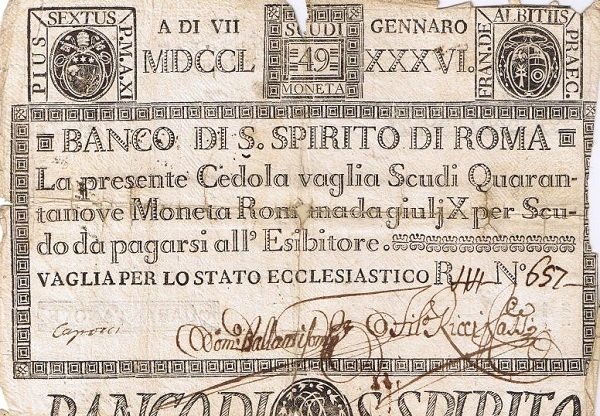 PIUS SEXTUS P.M.A.XI
A DI VII GENNARO
MDCCL XXXVI.
SCUDI
49
MONETA
FRAN. DE ALBITIIS PRAEC.
BANCO DI S. SPIRITO DI ROMA
La presente Cedola vaglia Scudi Quaran-
tanove Moneta Romana da giulj X per Scu-
do da pagarsi all' Esibitore.
VAGLIA PER LO STATO ECCLESIASTICO R. N.º 657
BANCO DI S. SPIRITO